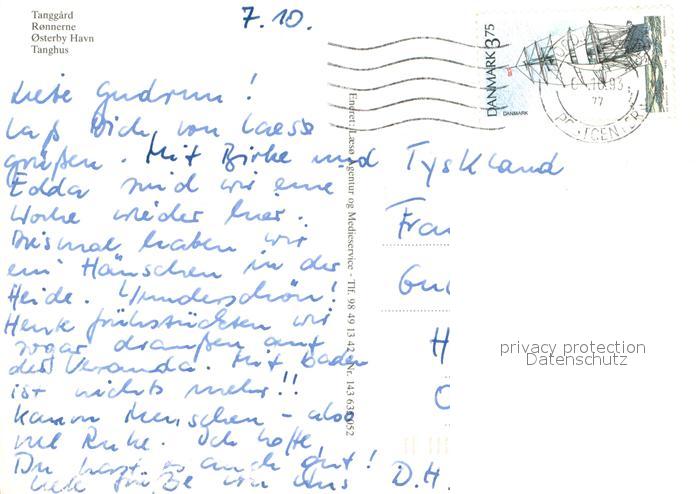 Tanggård
Rønnerne
Østerby Havn
Tanghus
7.10.
DANMARK 3.75
DANMARK
Liebe Gudrun!
Laß Dich von Laesø
grüßen. Mit Birke und
Edda sind wir eine
Woche wieder hier.
Diesmal haben wir
ein Häuschen in der
Heide. Wunderschön!
Heute frühstückten wir
sogar draußen auf
der Veranda. Mit baden
ist nichts mehr!!
Kaum Menschen - also
viel Ruhe. Ich hoffe,
Du hast es auch gut!
Liebe Grüße von uns D.H.
Eneret: Læsø Agentur og Medieservice - Tlf. 98 49 13 42
Tyskland
Frau
Gu
H
privacy protection
Datenschutz